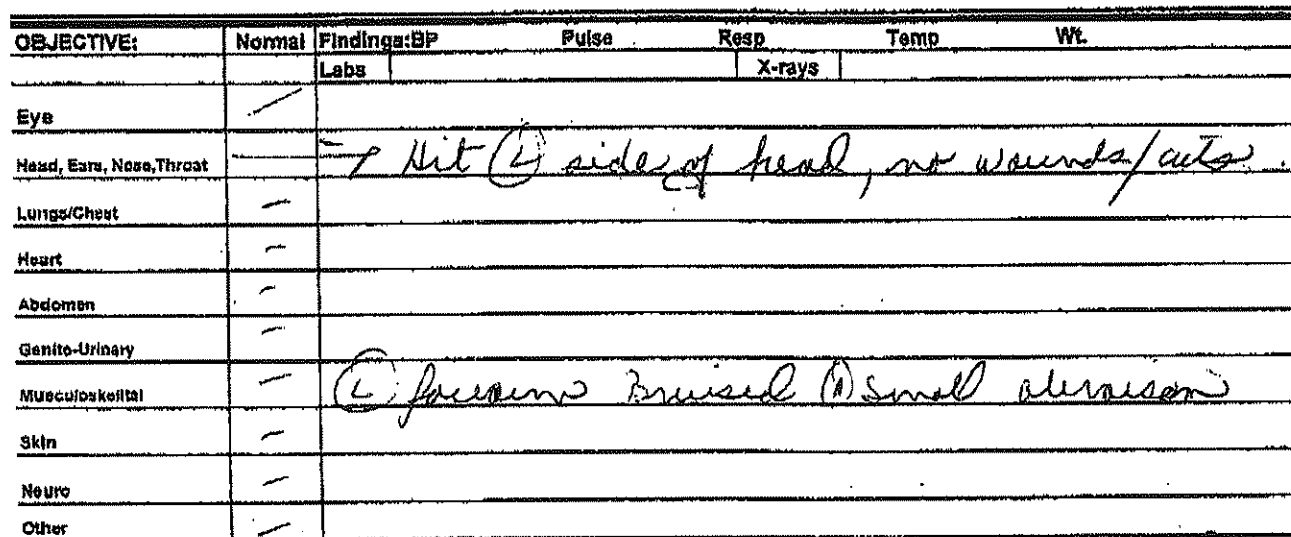 OBJECTIVE: Normal Findings:BP Pulse Resp Temp Wt.
Labs X-rays
Eye
Head, Ears, Nose,Throat Hit (L) side of head, no wounds/cuts.
Lungs/Chest
Heart
Abdomen
Genito-Urinary
Musculoskelital (L) forearm Bruised small
Skin
Neuro
Other